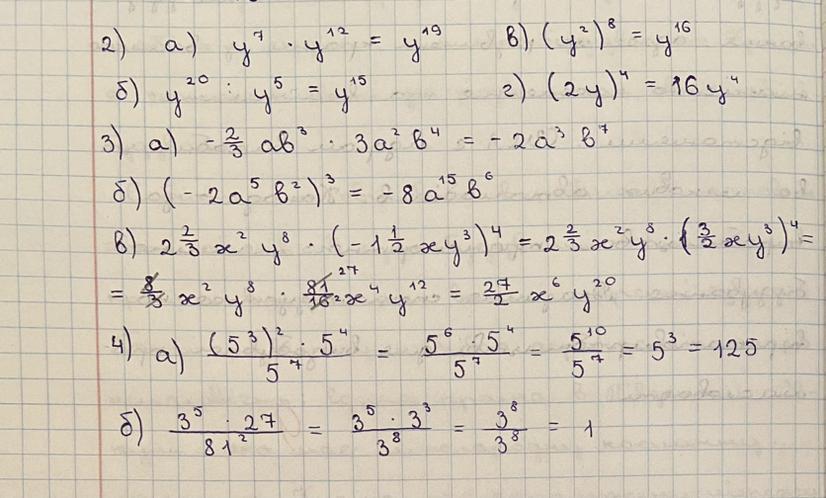 2) а) y⁷ · y¹² = y¹⁹ в) (y²)⁸ = y¹⁶
б) y²⁰ : y⁵ = y¹⁵ г) (2y)⁴ = 16y⁴
3) а) -2/3 ab³ · 3a² b⁴ = -2a³ b⁷
б) (-2a⁵ b²)³ = -8a¹⁵ b⁶
в) 2 2/3 x² y⁸ · (-1 1/2 xy³)⁴ = 2 2/3 x² y⁸ · (3/2 xy³)⁴ =
= 8/3 x² y⁸ · 81 27/16 2 x⁴ y¹² = 27/2 x⁶ y²⁰
4) а) (5³)² · 5⁴ / 5⁷ = 5⁶ · 5⁴ / 5⁷ = 5¹⁰ / 5⁷ = 5³ = 125
б) 3⁵ · 27 / 81² = 3⁵ · 3³ / 3⁸ = 3⁸ / 3⁸ = 1